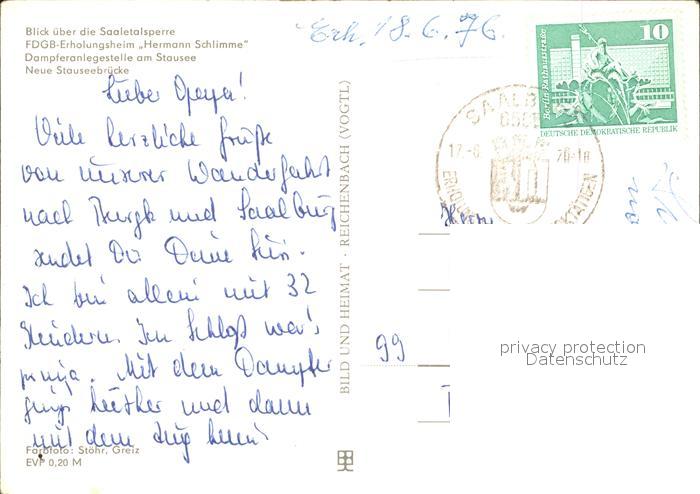 Blick über die Saaletalsperre
FDGB-Erholungsheim „Hermann Schlimme"
Dampferanlegestelle am Stausee
Neue Stauseebrücke
Erh. 18.6.76.
10
Berlin, Rathausstraße
DEUTSCHE DEMOKRATISCHE REPUBLIK
SAALB
17.-6. 76-18
ERHOLU
Lieber Opapa!
Viele herzliche Grüße
von unserer Wanderfahrt
nach Burgk und Saalburg
sendet Dir Deine
Ich bin allein mit 32
Kindern. Im Schloß war's
prima. Mit dem Dampfer
ging's hierher und dann
mit dem Zug heim
Herrn
99
BILD UND HEIMAT · REICHENBACH (VOGTL)
Farbfoto: Stöhr, Greiz
EVP 0,20 M
privacy protection
Datenschutz